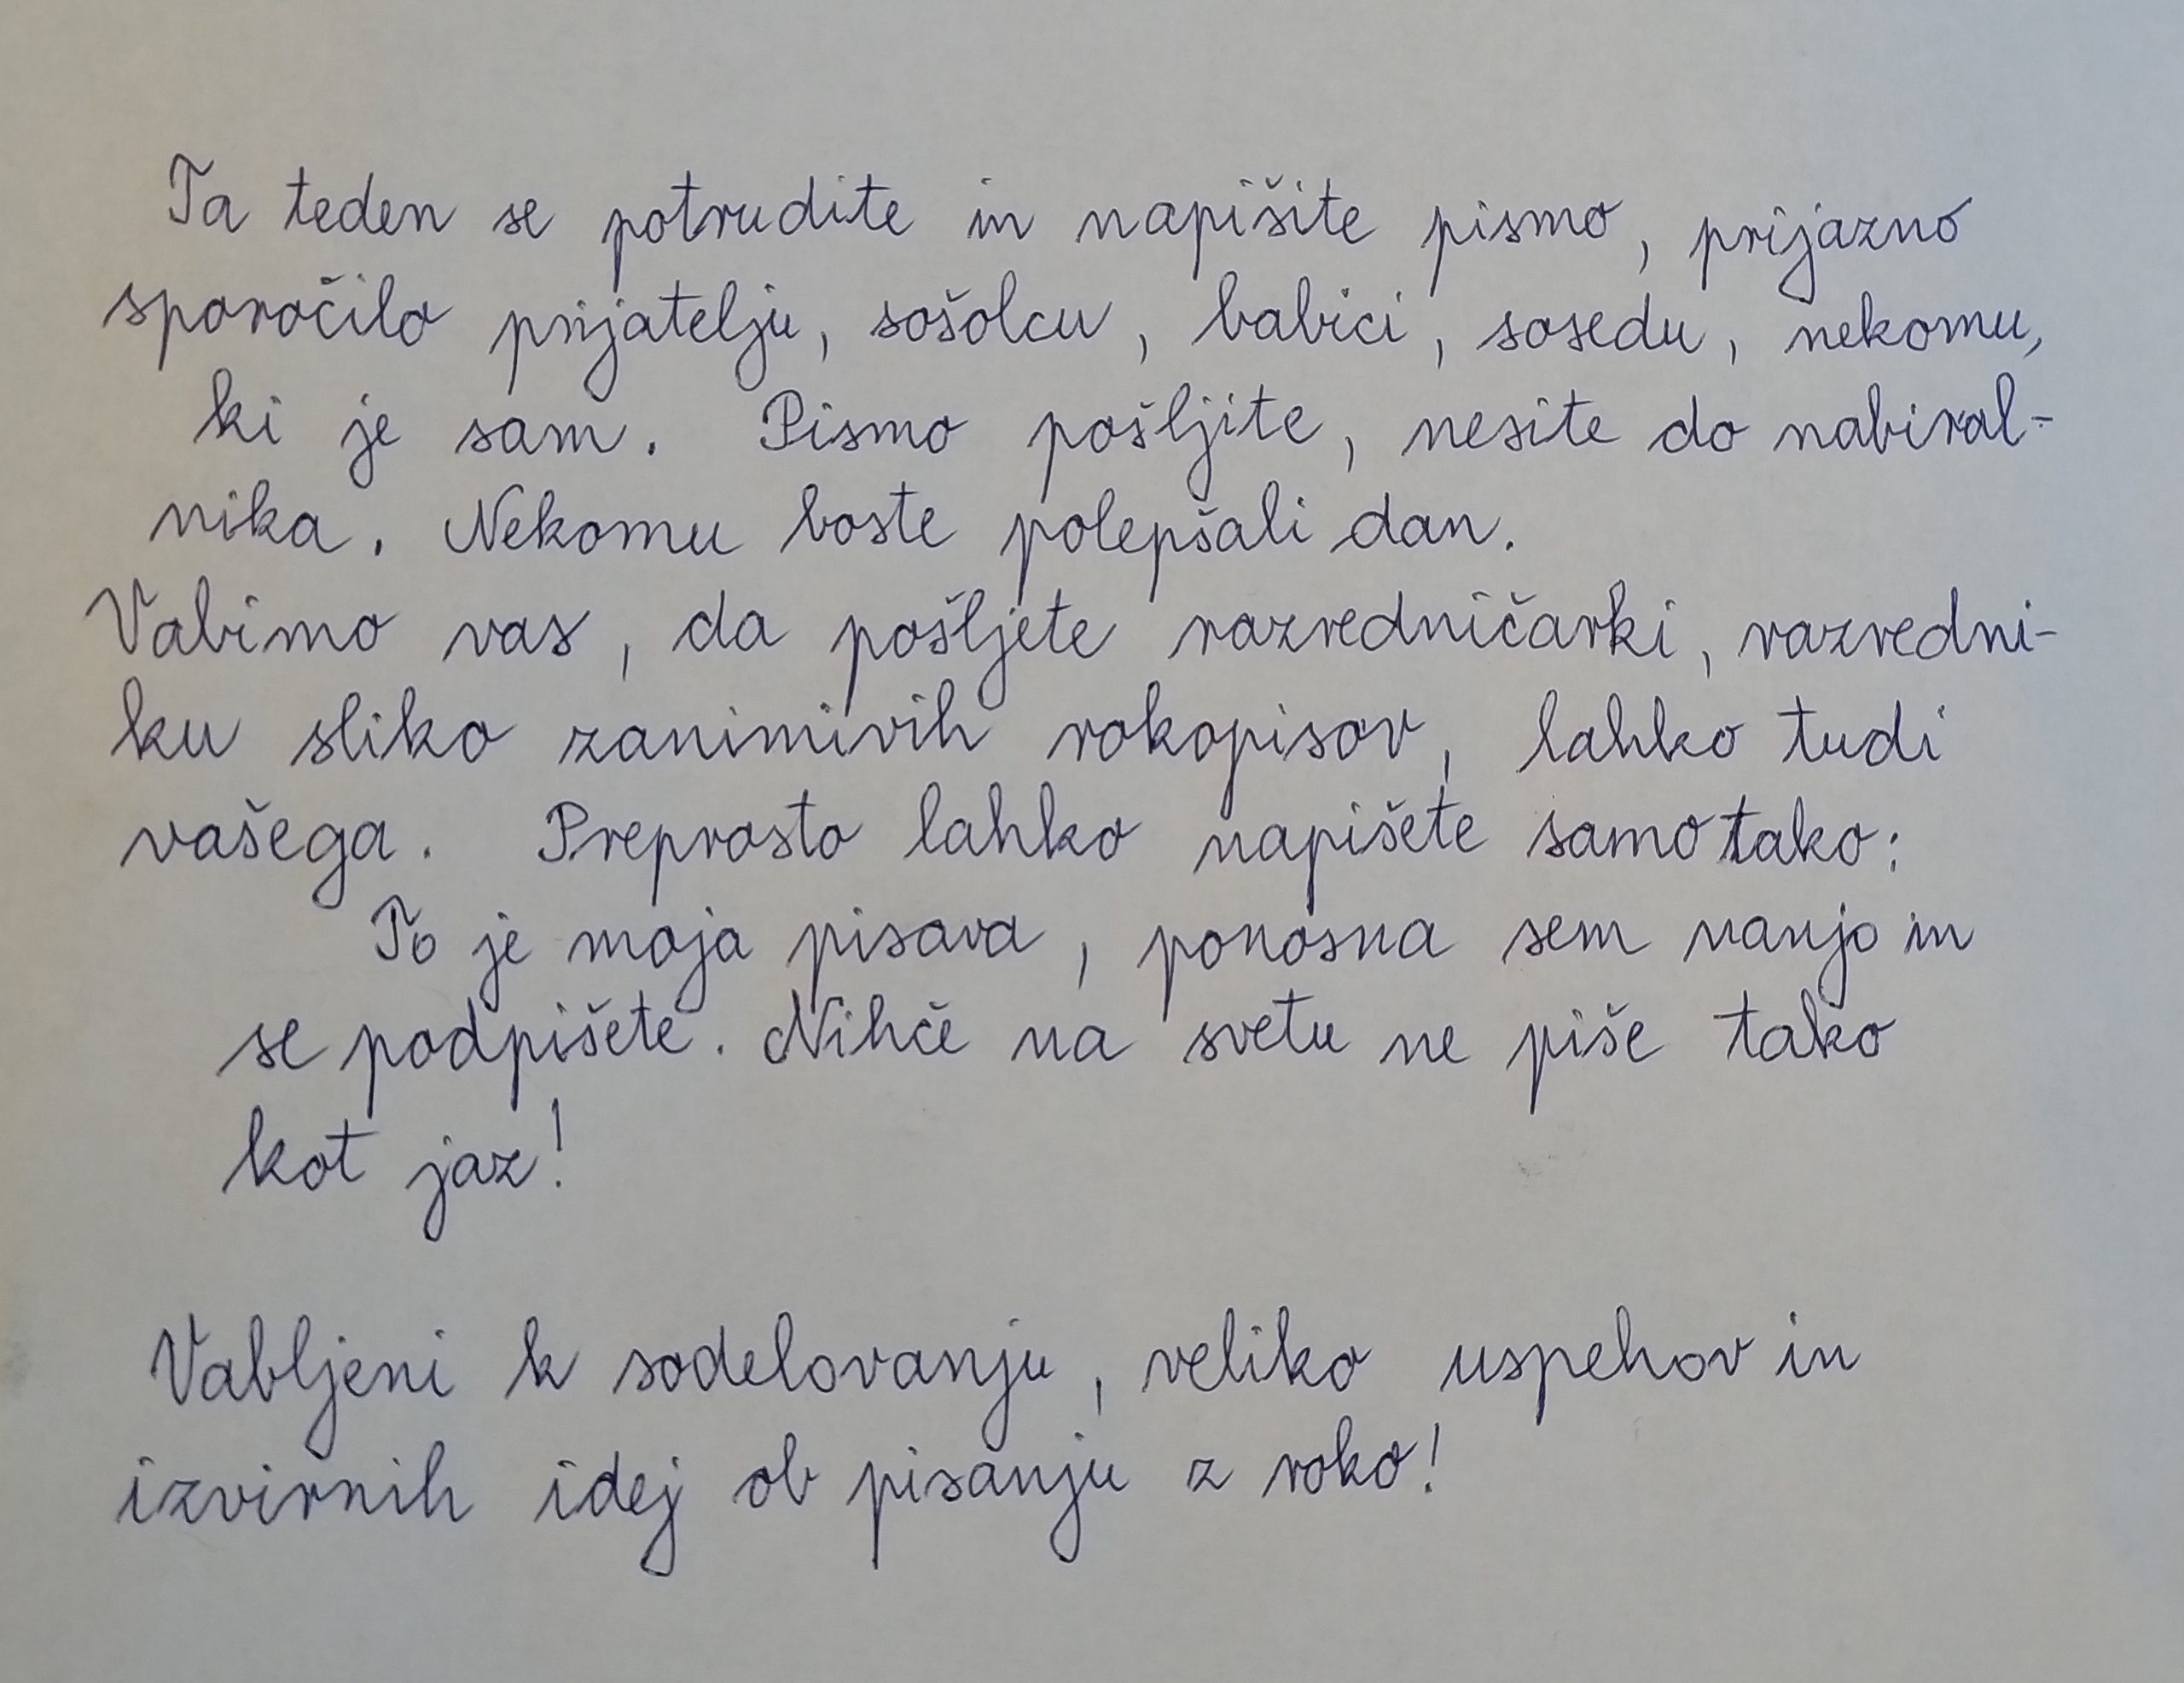 Ta teden se potrudite in napišite pismo, prijazno
sporočilo prijatelju, sošolcu, babici, sosedu, nekomu,
ki je sam. Pismo pošljite, nesite do nabiral-
nika. Nekomu boste polepšali dan.
Vabimo vas, da pošljete razredničarki, razredni-
ku sliko zanimivih rokopisov, lahko tudi
vašega. Preprosto lahko napišete samo tako:
To je moja pisava, ponosna sem nanjo in
se podpišete. Nihče na svetu ne piše tako
kot jaz!
Vabljeni k sodelovanju, veliko uspehov in
izvirnih idej ob pisanju z roko!